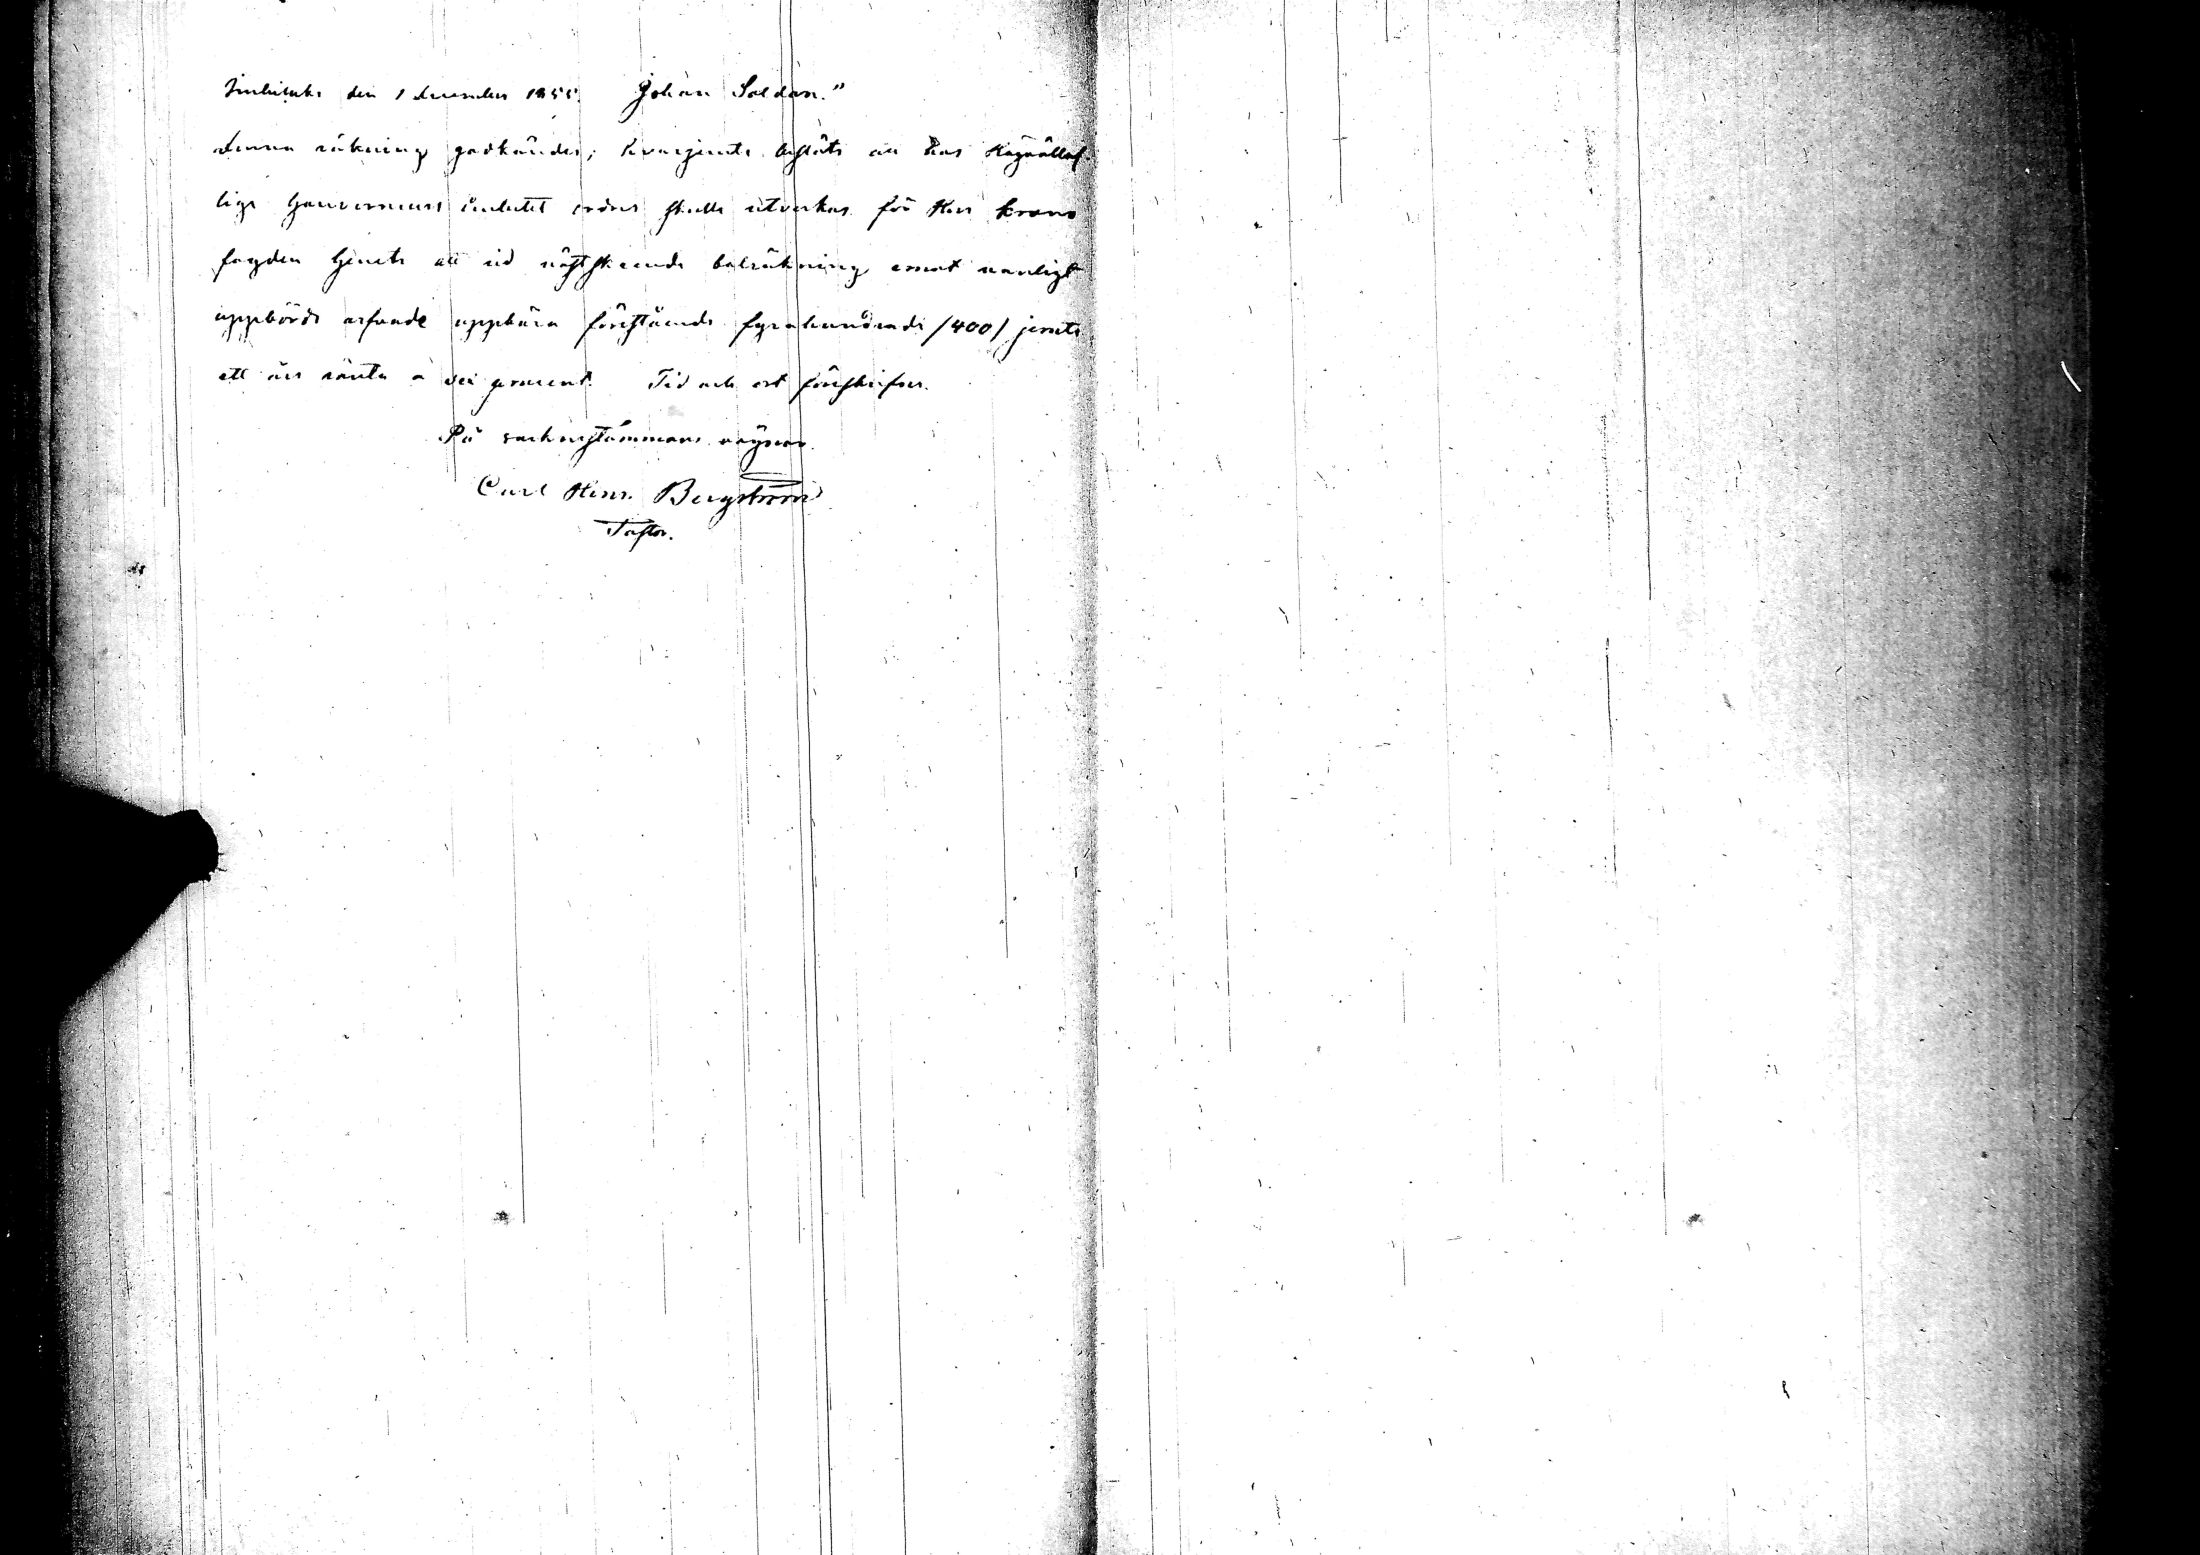 den 1 december 1855. Johan Soldan."
denna räkning godkändes; hvarjemte beslöts att hos Högvällof-
lige Gouverneurs embetet ordres skulle utverkas för Herr krono
fogden att vid nästskeende balräkning emot vanligt
uppbörds arfvode uppbära förestående fyrahundrade /400/ jemte
ett års ränta à sex procent. Tid och ort förskrifne.
På sockenstämmans vägnar.
Carl Henr. Bergström
Pastor.